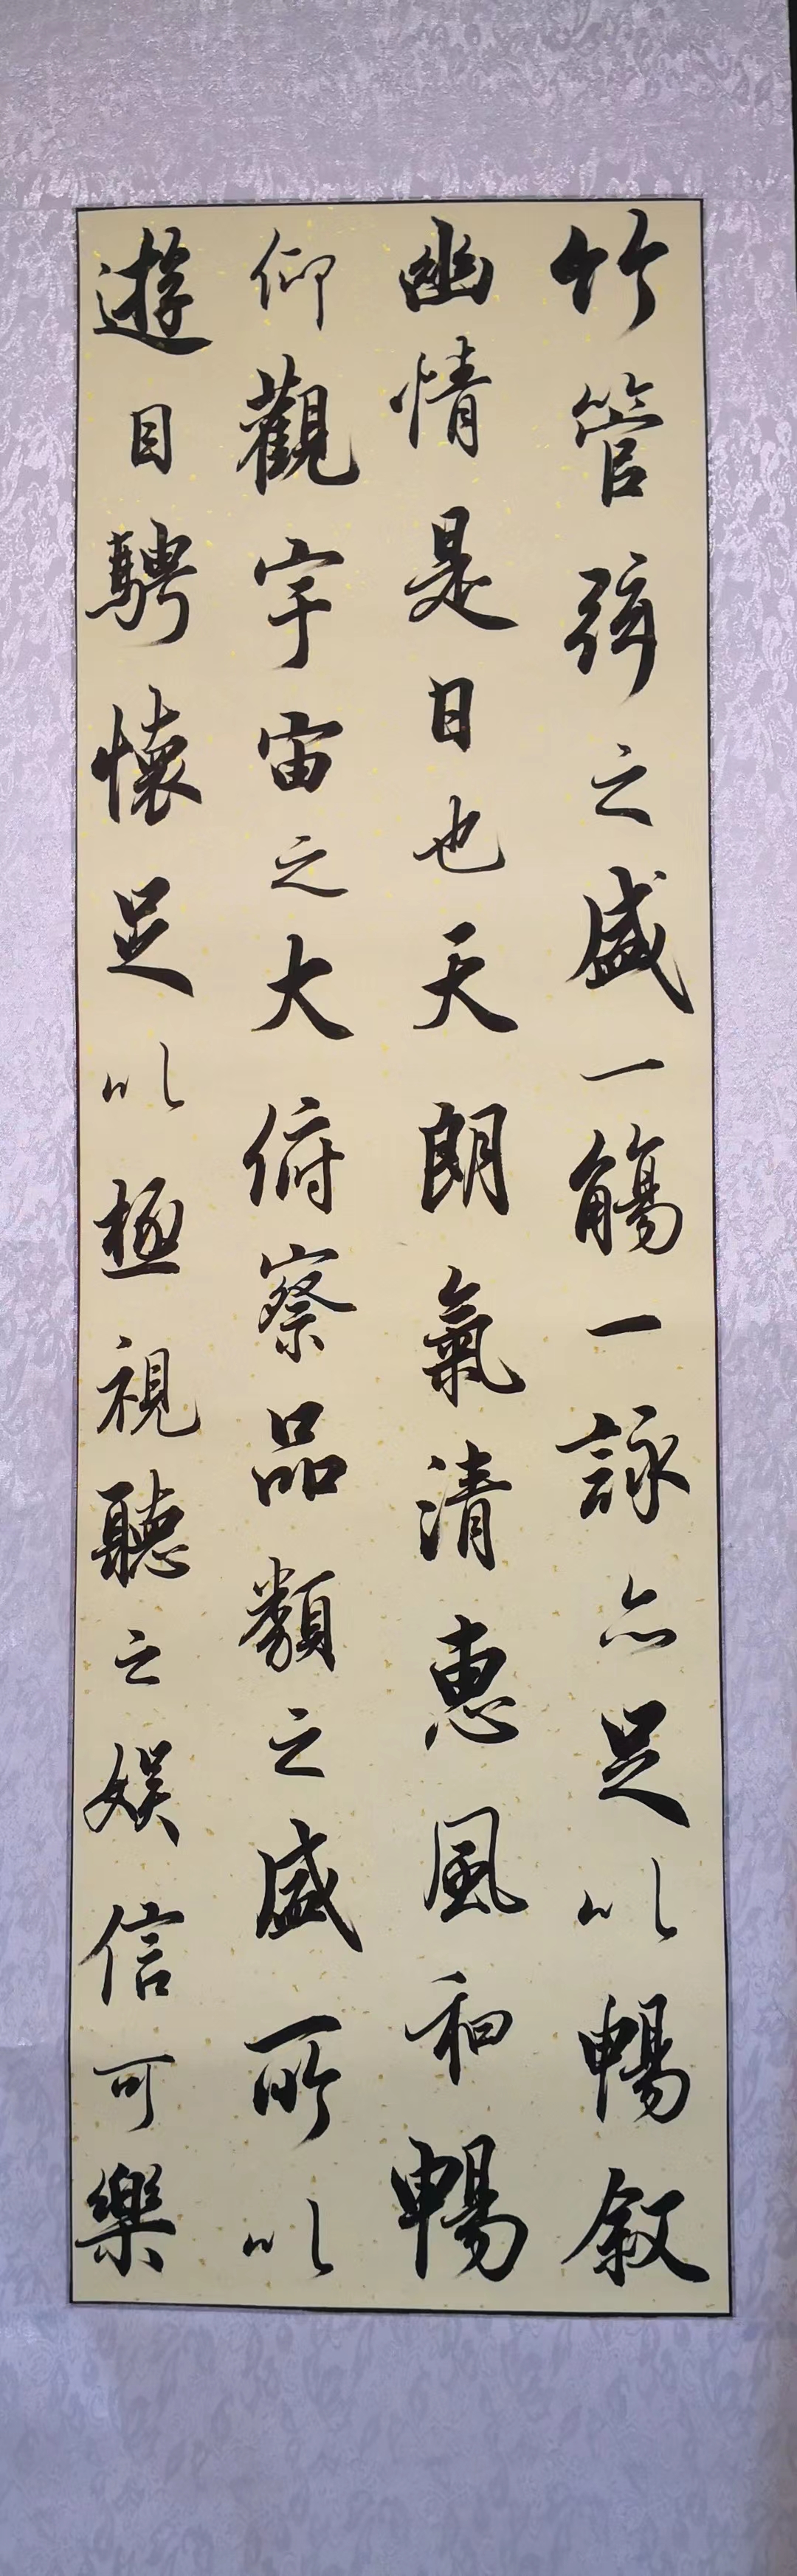 竹管弦之盛一觴一詠亦足以暢叙
幽情是日也天朗氣清惠風和暢
仰觀宇宙之大俯察品類之盛所以
遊目騁懷足以極視聽之娱信可樂